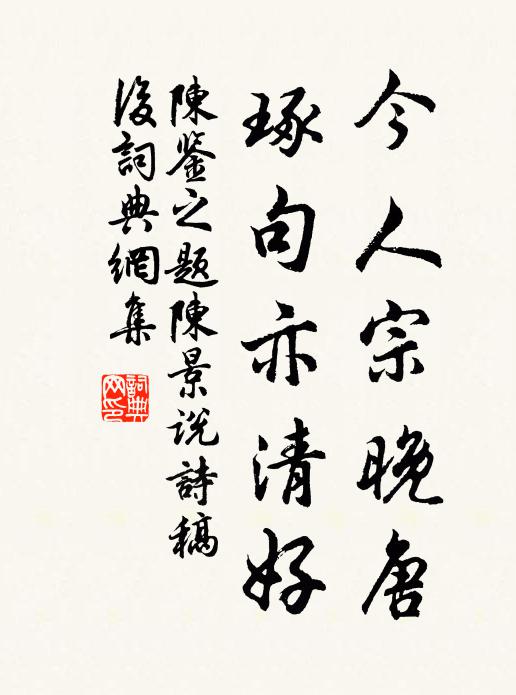 今人宗晚唐
琢句亦清好
陳鉴之题陳景说詩稿
後詞典網集
詞典网印